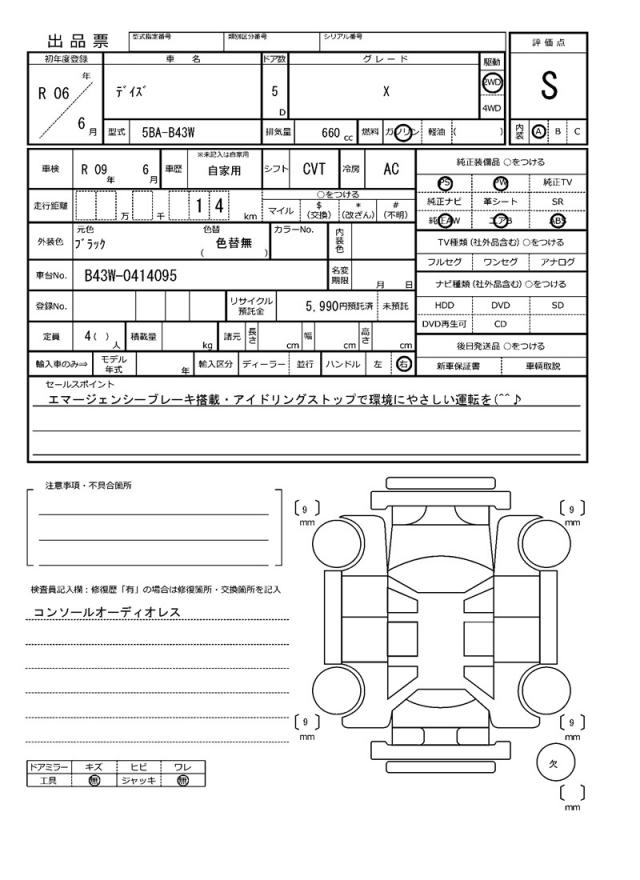 出品票 型式指定番号 類別区分番号 シリアル番号 評価点
初年度登録 車名 ドア数 グレード 駆動
R 06 年 デイズ 5 D X 2WD S
6 月 4WD
型式 5BA-B43W 排気量 660 cc 燃料 ガソリン 軽油 ( ) 内装 A B C
車検 R 09 年 6 月 車歴 ※未記入は自家用 自家用 シフト CVT 冷房 AC 純正装備品 ○をつける
PS PW 純正TV
走行距離 万 千 1 4 km ○をつける 純正ナビ 革シート SR
マイル $ (交換) * (改ざん) # (不明) 純正AW エアB ABS
外装色 元色 ブラック 色替 色替無 ( ) カラーNo. 内装色 TV種類 (社外品含む) ○をつける
フルセグ ワンセグ アナログ
車台No. B43W-0414095 名変期限 月 日 ナビ種類 (社外品含む) ○をつける
登録No. リサイクル預託金 5,990円預託済 未預託 HDD DVD SD
DVD再生可 CD
定員 4 ( ) 人 積載量 kg 諸元 長さ cm 幅 cm 高さ cm 後日発送品 ○をつける
輸入車のみ⇒ モデル年式 年 輸入区分 ディーラー 並行 ハンドル 左 右 新車保証書 車輌取説
セールスポイント
エマージェンシーブレーキ搭載・アイドリングストップで環境にやさしい運転を(^^♪
注意事項・不具合箇所
9 mm 9 mm
検査員記入欄：修復歴「有」の場合は修復箇所・交換箇所を記入
コンソールオーディオレス
9 mm 9 mm
ドアミラー キズ ヒビ ワレ
工具 無 ジャッキ 無
欠
mm